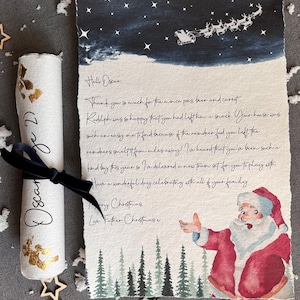 Hello Oscar,
Thank you so much for the mince pies
Rudolph was so happy that you had left him a snack. Your house was
such an easy one to find because of the reindeer food you left the
reindeers smelt it from miles away! I've heard that you've been such a
good boy this year so I've delivered a new train set for you to play with
a wonderful day celebrating with all of your family
Christmas
Love Father Christmas x
Oscar